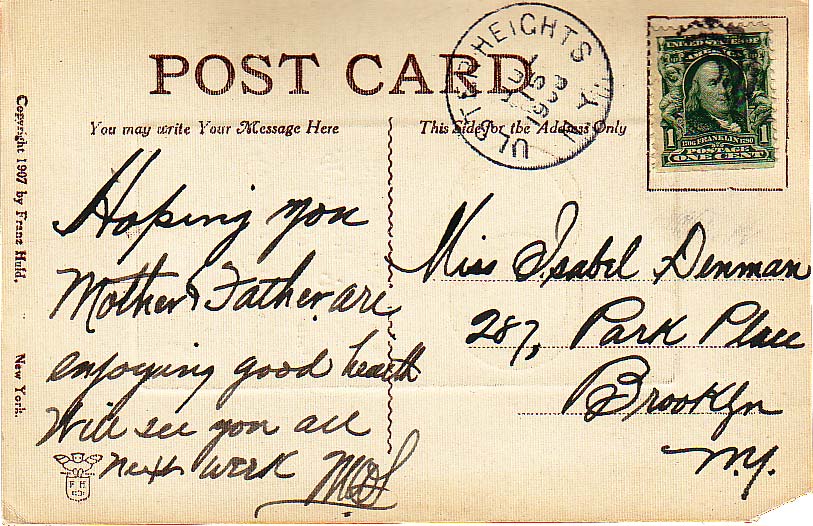 POST CARD
You may write Your Message Here
This Side for the Address Only
ULSTER HEIGHTS N.Y.
UNITED STATES OF AMERICA
1706 FRANKLIN 1790
1 POSTAGE 1
ONE CENT
Copyright 1907 by Franz Huld, New York.
Hoping you
Mother & Father are
enjoying good health
Will see you all
next week
F H
Miss Isabel Denman
287, Park Place
Brooklyn
N.Y.